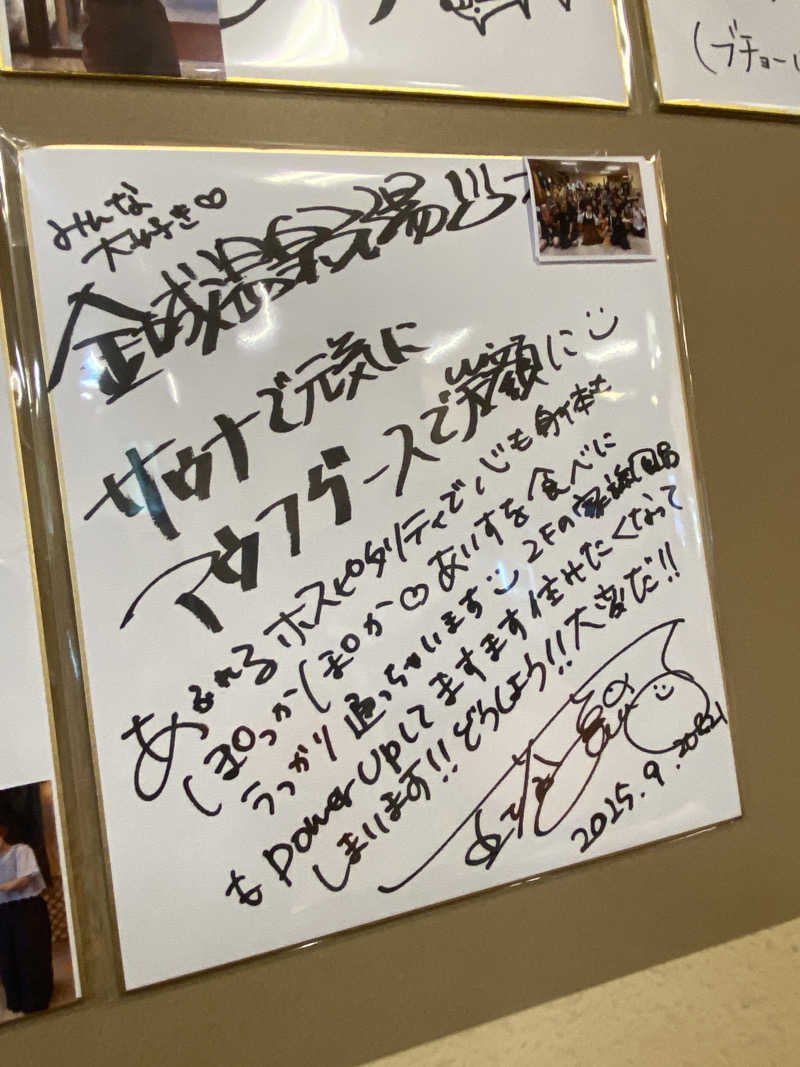 (ブチョー
みんな
大好き♡
金城温楽湯♨
サウナで元気に
アウフグースで笑顔に
あふれるホスピタリティで心も身体も
ぽっかぽか♡あいすを食べに
うっかり通っちゃいます 2Fの家族風呂
もPowerUpしてますます住みたくなって
しまいます!!どうしよう!!大変だ!!
2025.9.20&21